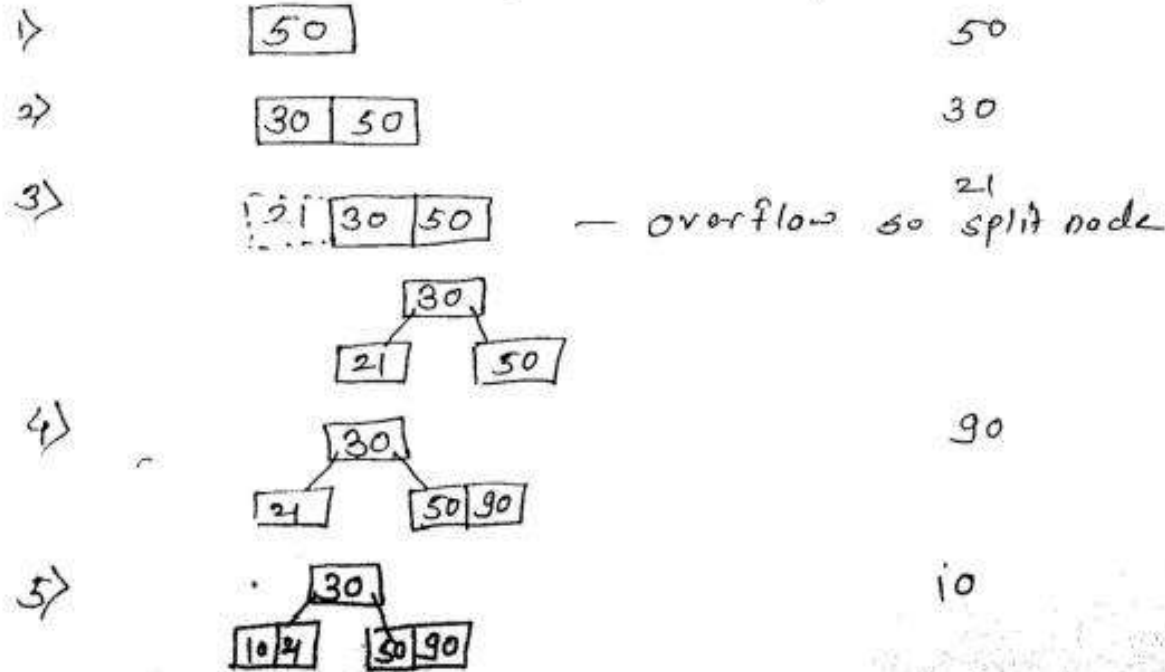 1> 50 50
2> 30 50 30
21
3> 21 30 50 — overflow so split node
30
21 50
4> 30 90
21 50 90
5> 30 10
10 21 50 90